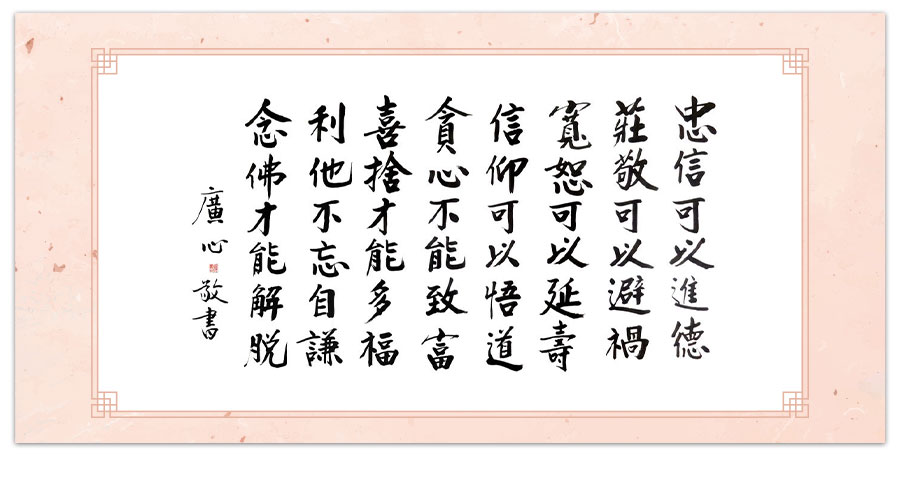 忠信可以進德
莊敬可以避禍
寬恕可以延壽
信仰可以悟道
貪心不能致富
喜捨才能多福
利他不忘自謙
念佛才能解脫
廣心敬書